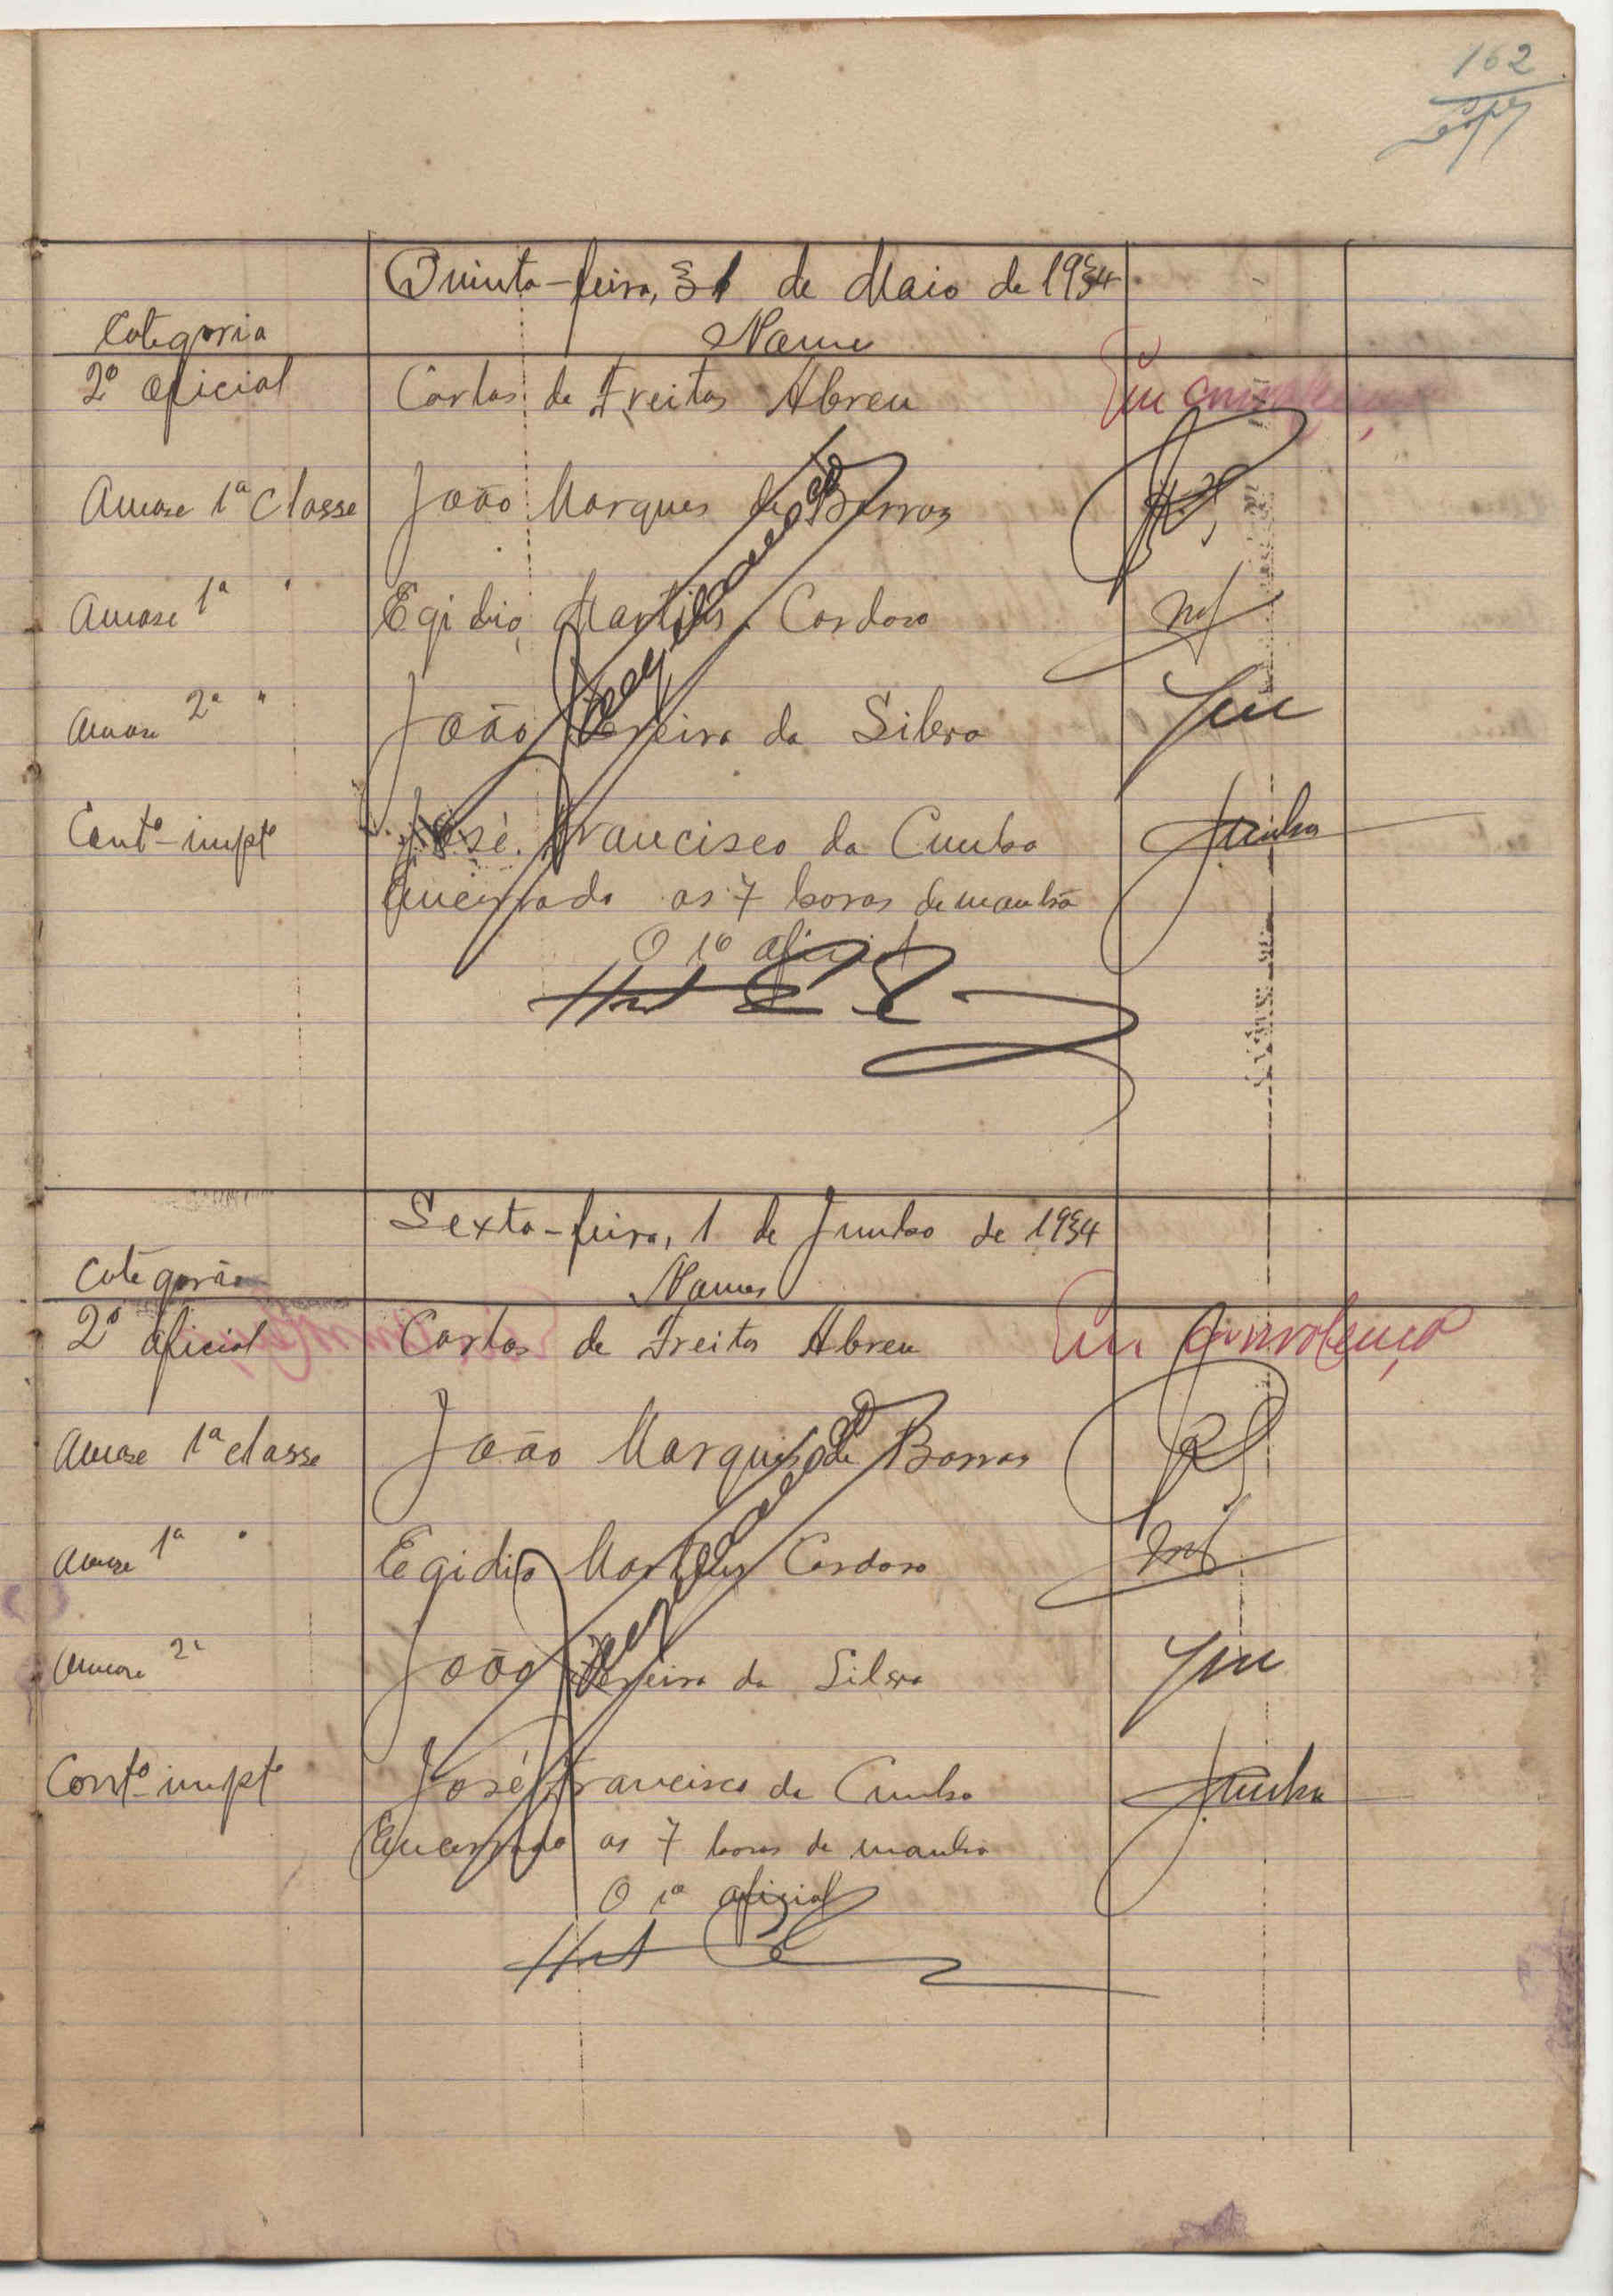 162
Quinta-feira, 31 de Maio de 1934
Categoria Nome
2º oficial Carlos de Freitas Abreu Em
Amase 1ª Classe João Marques de Barros
Amase 1ª " Egidio Martins Cardoso
Amase 2ª " João Pereira da Silva
Contº impto José Francisco da Cunha JCunha
Encerrado as 7 horas da manhã
O 1º oficial
Sexta-feira, 1 de Junho de 1934
Categoria Nomes
2º oficial Carlos de Freitas Abreu Em convalença
Amase 1ª classe João Marques de Barros
Amase 1ª " Egidio Martins Cardoso
Amase 2ª João Pereira da Silva
Contº impto José Francisco da Cunha JCunha
Encerrado as 7 horas da manhã
O 1º oficial